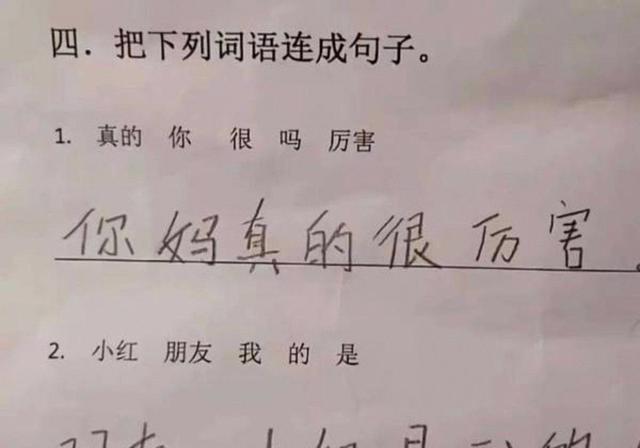 四. 把下列词语连成句子。
1. 真的 你 很 吗 厉害
你妈真的很厉害。
2. 小红 朋友 我 的 是